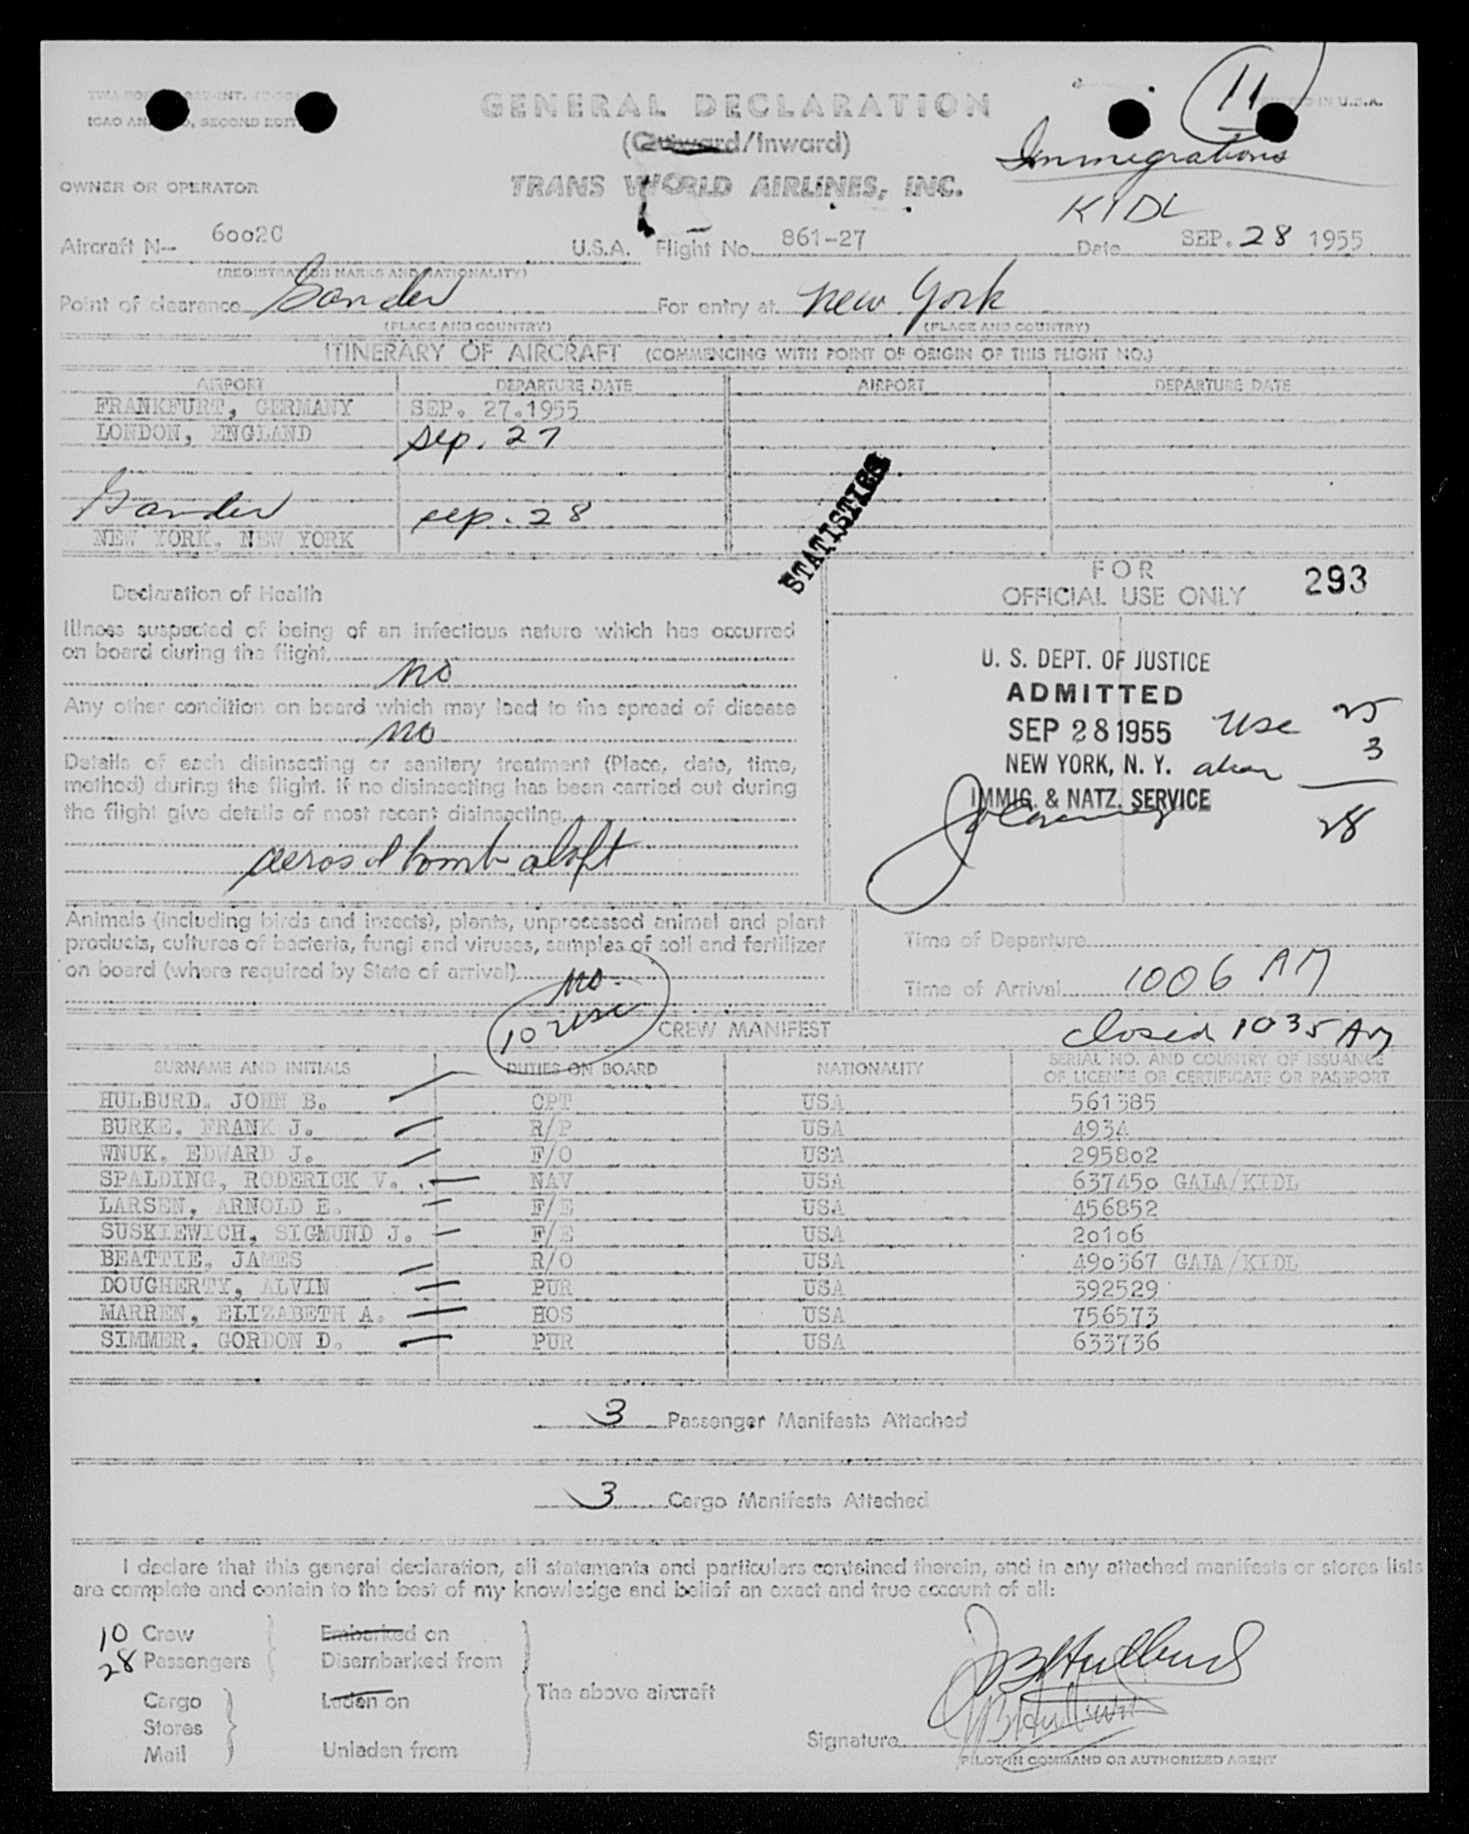 11
GENERAL DECLARATION
ICAO AN , SECOND EDIT
IN U.S.A.
(Outward/Inward)
Immigrations
OWNER OR OPERATOR
TRANS WORLD AIRLINES, INC.
KIDL
Aircraft N— 6002C U.S.A. Flight No. 861-27 Date SEP. 28 1955
(REGISTRATION MARKS AND NATIONALITY)
Point of clearance Gander For entry at New York
(PLACE AND COUNTRY) (PLACE AND COUNTRY)
ITINERARY OF AIRCRAFT (COMMENCING WITH POINT OF ORIGIN OF THIS FLIGHT NO.)
AIRPORT DEPARTURE DATE AIRPORT DEPARTURE DATE
FRANKFURT, GERMANY SEP. 27.1955
LONDON, ENGLAND Sep. 27
Gander Sep. 28
NEW YORK, NEW YORK
STATISTICS
Declaration of Health
Illness suspected of being of an infectious nature which has occurred
on board during the flight
no
Any other condition on board which may lead to the spread of disease
no
Details of each disinsecting or sanitary treatment (Place, date, time,
method) during the flight. If no disinsecting has been carried out during
the flight give details of most recent disinsecting
aerosol bomb aloft
FOR
OFFICIAL USE ONLY 293
U. S. DEPT. OF JUSTICE
ADMITTED
SEP 28 1955 USC 25
NEW YORK, N. Y. alien 3
IMMIG. & NATZ. SERVICE
28
Animals (including birds and insects), plants, unprocessed animal and plant
products, cultures of bacteria, fungi and viruses, samples of soil and fertilizer
on board (where required by State of arrival)
no
Time of Departure
Time of Arrival 1006 AM
10 usc
CREW MANIFEST
Closed 1035 AM
SURNAME AND INITIALS DUTIES ON BOARD NATIONALITY SERIAL NO. AND COUNTRY OF ISSUANCE
OF LICENSE OR CERTIFICATE OR PASSPORT
HULBURD. JOHN B. CPT USA 561385
BURKE. FRANK J. R/P USA 4934
WNUK. EDWARD J. F/O USA 295802
SPALDING, RODERICK V. NAV USA 637450 GALA/KIDL
LARSEN, ARNOLD E. F/E USA 456852
SUSKIEWICH, SIGMUND J. F/E USA 20106
BEATTIE, JAMES R/O USA 490367 GAIA/KIDL
DOUGHERTY, ALVIN PUR USA 392529
MARREN, ELIZABETH A. HOS USA 756573
SIMMER, GORDON D. PUR USA 633736
3 Passenger Manifests Attached
3 Cargo Manifests Attached
I declare that this general declaration, all statements and particulars contained therein, and in any attached manifests or stores lists
are complete and contain to the best of my knowledge and belief an exact and true account of all:
10 Crew Embarked on
28 Passengers Disembarked from
The above aircraft
Cargo Laden on
Stores
Mail Unladen from
JB Hulburd
JB Hulburd
Signature
PILOT IN COMMAND OR AUTHORIZED AGENT